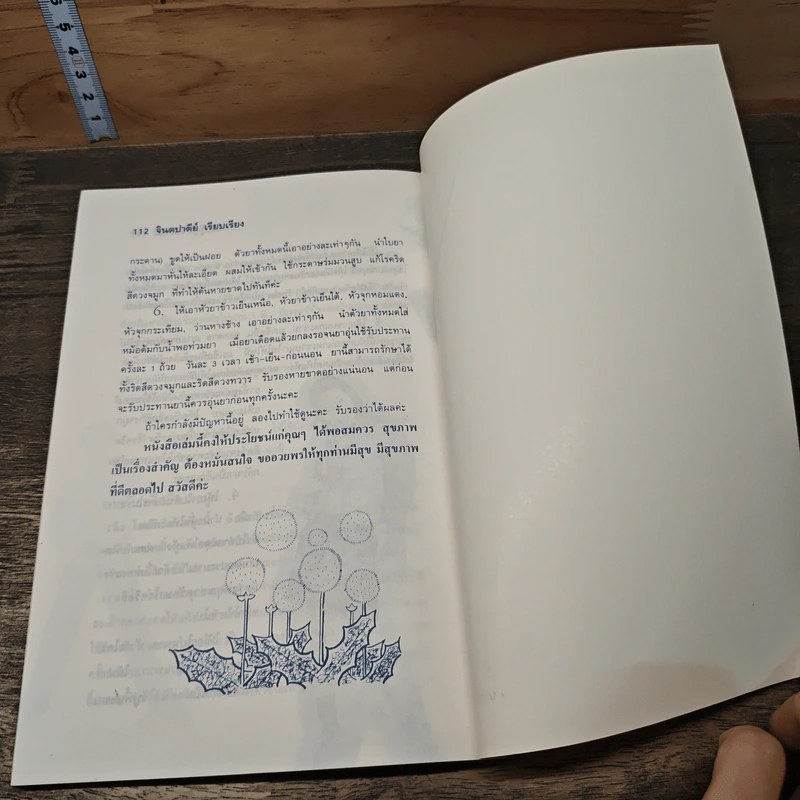 5
5
4
3
2
1
112 จินตปาตีย์ เรียบเรียง
กระดาน) ขูดให้เป็นฝอย ตัวยาทั้งหมดนี้เอาอย่างละเท่าๆกัน นำใบยา
ทั้งหมดมาหั่นให้ละเอียด ผสมให้เข้ากัน ใช้กระดาษร่มมวนสูบ แก้โรคริด
สีดวงจมูก ที่ทำให้คันหายขาดไปทันทีค่ะ
6. ให้เอาหัวยาข้าวเย็นเหนือ, หัวยาข้าวเย็นใต้, หัวจุกหอมแดง,
หัวจุกกระเทียม, ว่านหางช้าง เอาอย่างละเท่าๆกัน นำตัวยาทั้งหมดใส่
หม้อต้มกับน้ำพอท่วมยา เมื่อยาเดือดแล้วยกลงรอจนยาอุ่นใช้รับประทาน
ครั้งละ 1 ถ้วย วันละ 3 เวลา เช้า-เย็น-ก่อนนอน ยานี้สามารถรักษาได้
ทั้งริดสีดวงจมูกและริดสีดวงทวาร รับรองหายขาดอย่างแน่นอน แต่ก่อน
จะรับประทานยานี้ควรอุ่นยาก่อนทุกครั้งนะคะ
ถ้าใครกำลังมีปัญหานี้อยู่ ลองไปทำใช้ดูนะคะ รับรองว่าได้ผลค่ะ
หนังสือเล่มนี้คงให้ประโยชน์แก่คุณๆ ได้พอสมควร สุขภาพ
เป็นเรื่องสำคัญ ต้องหมั่นสนใจ ขออวยพรให้ทุกท่านมีสุข มีสุขภาพ
ที่ดีตลอดไป สวัสดีค่ะ